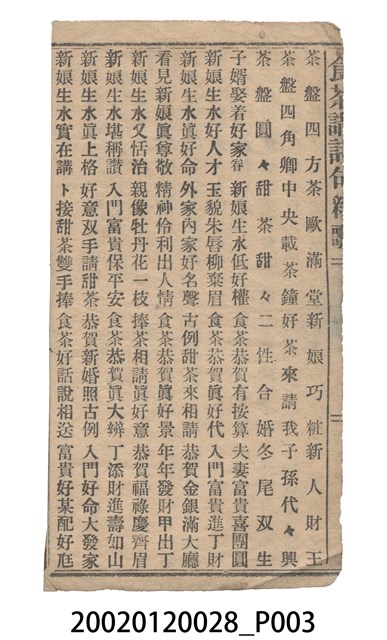 食茶講詩句新歌
茶盤四方茶歐滿堂新娘巧粧新人財王
茶盤四角鄉中央載茶鐘好茶來請我子孫代々興
茶盤圓々甜茶甜々二性合婚冬尾双生
子婿娶著好家 新娘生水低好權 食茶恭賀有按算 夫妻富貴喜團圓
新娘生水好人才 玉貌朱唇柳葉眉 食茶恭賀眞好代 入門富貴進丁財
新娘生水眞好命 外家內家好名聲 古例甜茶來相請 恭賀金銀滿大廳
看見新娘眞尊敬 精神伶利出人情 食茶恭賀眞好景 年年發財甲出丁
新娘生水又恬治 親像牡丹花一枝 捧茶相請眞好意 恭賀福祿慶齊眉
新娘生水堪稱讚 入門富貴保平安 食茶恭賀眞大辦 丁添財進壽如山
新娘生水眞上格 好意双手請甜茶 恭賀新婚照古例 入門好命大發家
新娘生水實在講 卜接甜茶雙手捧 食茶好話說相送 富貴好某配好尪
20020120028_P003